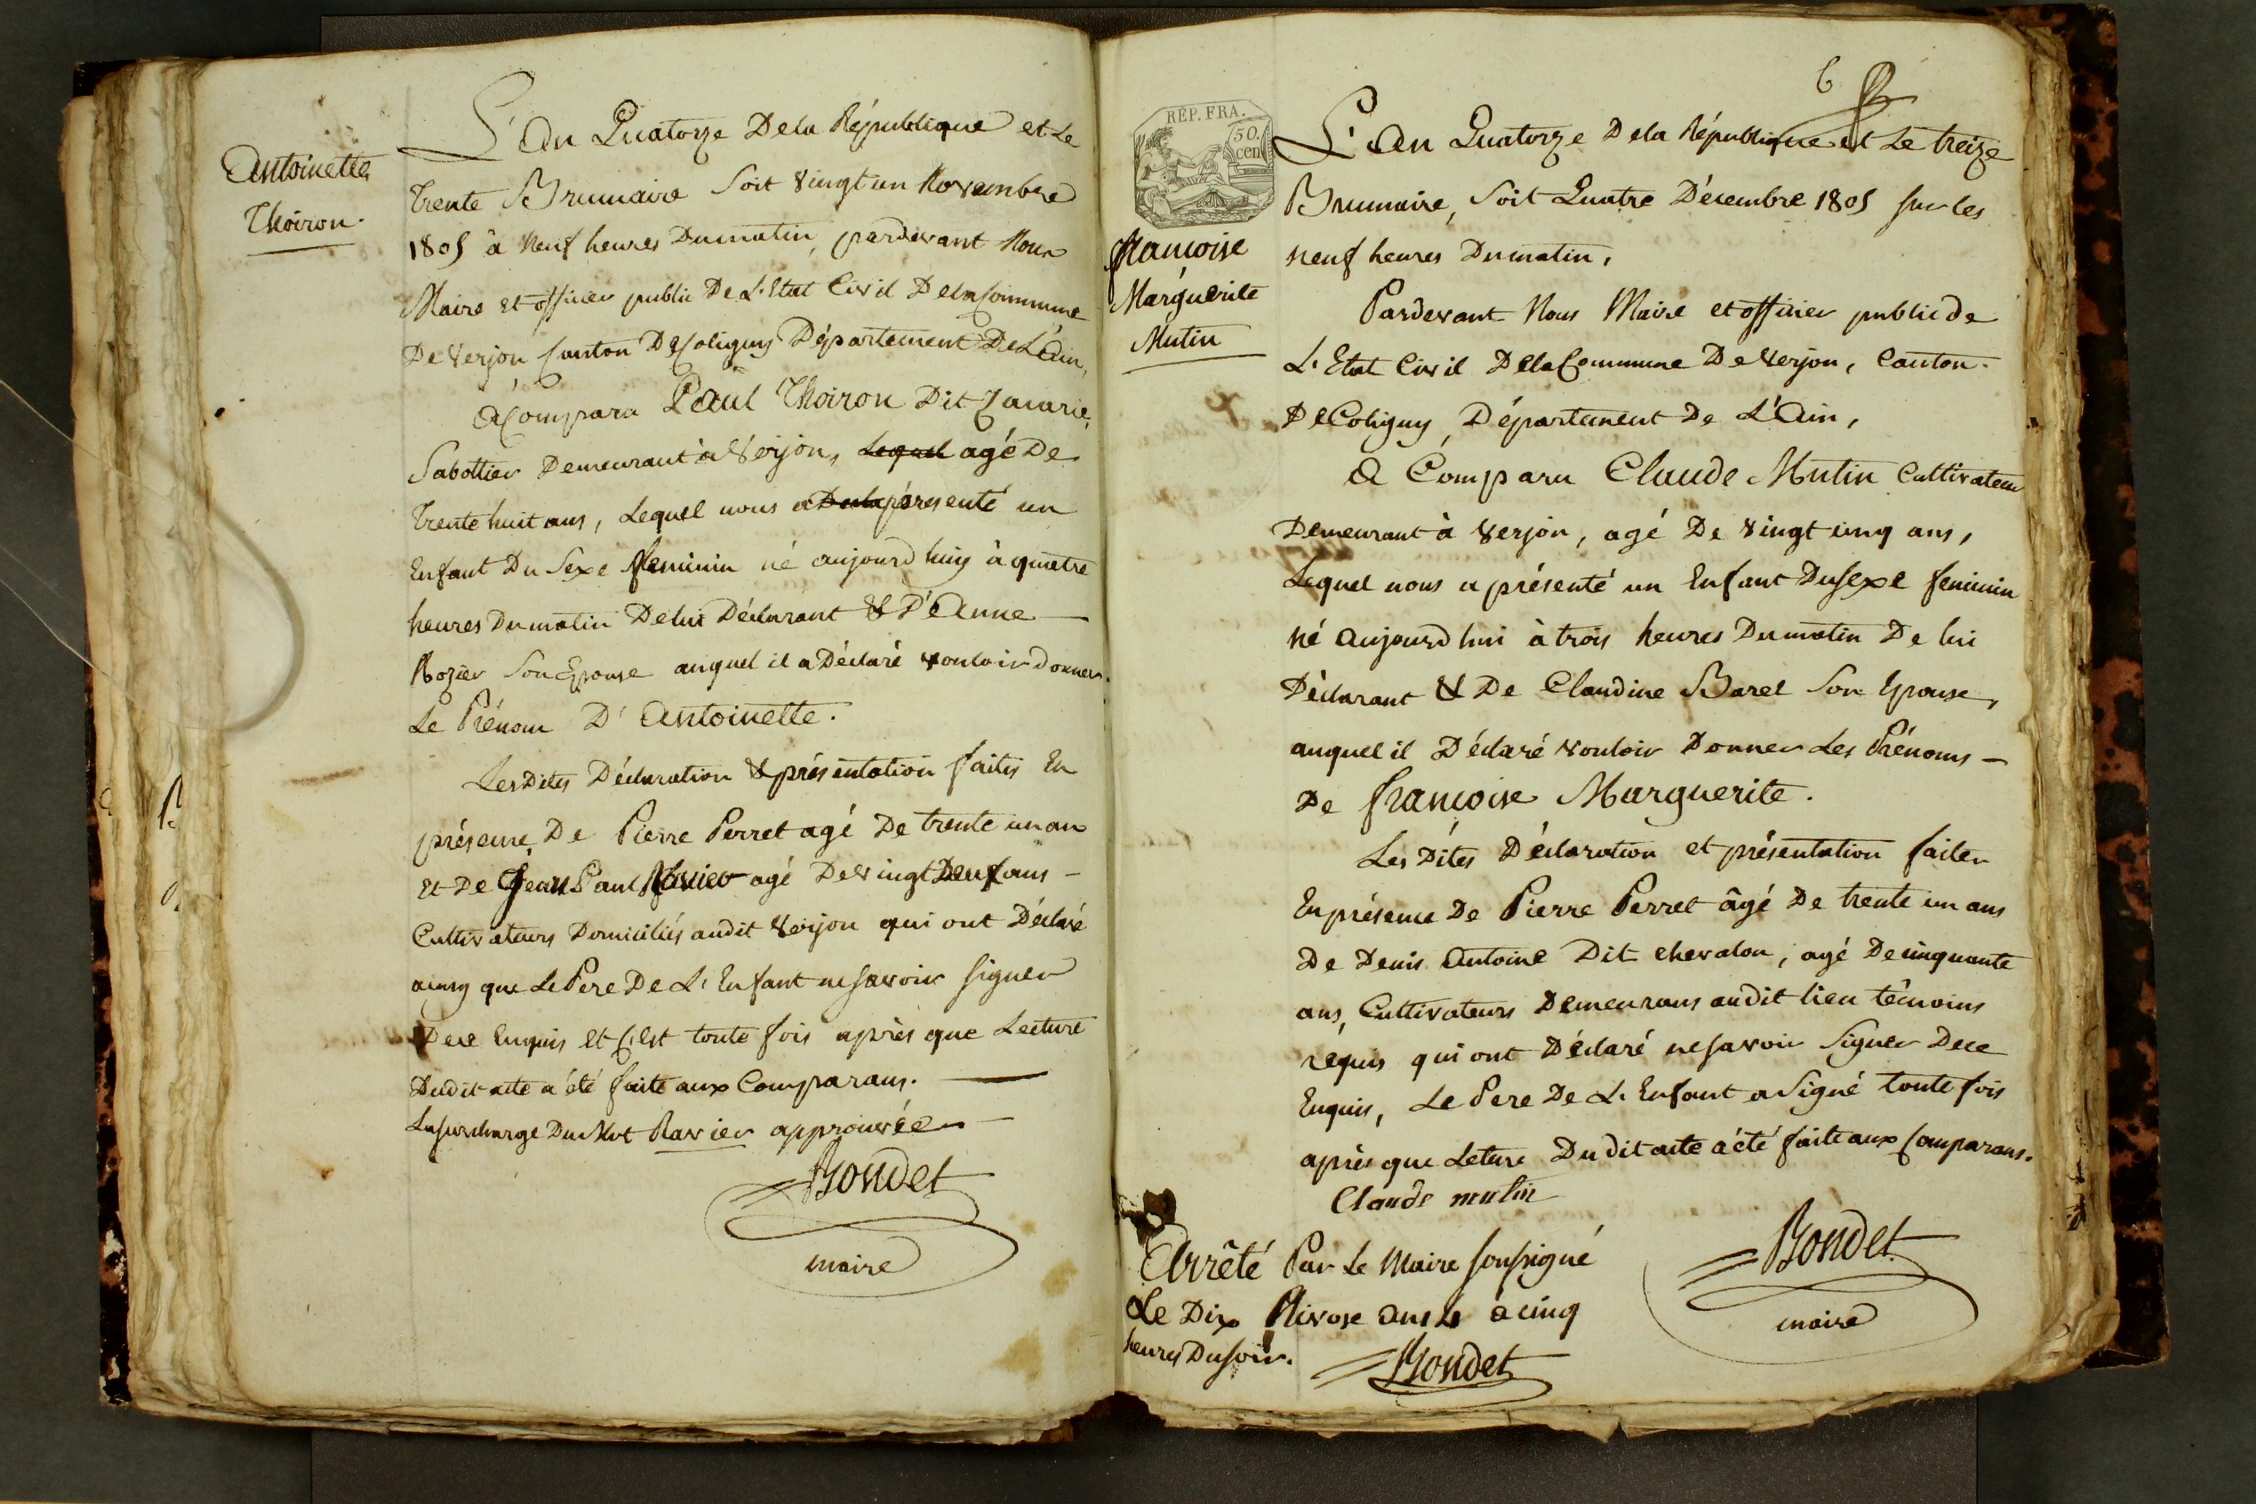 Antoinette
Thoiron.
L'an Quatorze De la République et Le
trente Brumaire Soit vingt un Novembre
1805 à Neuf heures Du matin, pardevant Nous
Maire et officier public De L'Etat Civil De la Commune
De Verjon Canton De Coligny Département De L'Ain,
a Comparu Paul Thoiron Dit Zacarie,
Sabottier Demeurant à Verjon, Lequel agé De
trente huit ans, Lequel nous a présenté un
Enfant Du Sexe feminin né aujourd'huy à quatre
heures Du matin De lui Déclarant & D'Anne
Rozier Son Epouse auquel il a Déclaré vouloir Donner
Le Prénom D'Antoinette.
Les Dites Déclaration & présentation faites En
présence De Pierre Perret agé De trente un ans
et De Jean Paul Ravier agé De vingt Deux ans -
Cultivateurs Domiciliés audit Verjon qui ont Déclaré
ainsy que Le Pere De L'Enfant ne savoir signer
De ce Enquis et C'est toute fois après que Lecture
Dudit acte a été faite aux Comparans.
La surcharge Du Mot Ravier approuvée
Bondet
maire
6
REP. FRA.
50.
cen
françoise
Marguerite
Mutin
L'an Quatorze De la République et Le treize
Brumaire, Soit Quatre Décembre 1805 sur les
neuf heures Du matin,
Pardevant Nous Maire et officier public de
L'Etat Civil De la Commune De Verjon, Canton
De Coligny, Département De L'Ain,
a Comparu Claude Mutin Cultivateur
Demeurant à Verjon, agé De vingt cinq ans,
Lequel nous a présenté un Enfant Du sexe feminin
né aujourd'hui à trois heures Du matin De lui
Déclarant & De Claudine Barel Son Epouse,
auquel il Déclaré vouloir Donner Les Prénoms -
De françoise Marguerite.
Les Dites Déclaration et présentation faites
En présence De Pierre Perret âgé De trente un ans
De Denis Antoine Dit chevalon, agé De cinquante
ans, Cultivateurs Demeurans audit lieu témoins
réquis qui ont Déclaré ne savoir Signer De ce
Enquis, Le Pere De L'Enfant a Signé toute fois
après que Leture Du dit acte a été faite aux Comparans.
Claude mutin
Bondet
maire
Arrêté Par Le Maire soussigné
Le Dix Nivose an 14 à cinq
heures Du soir.
Bondet